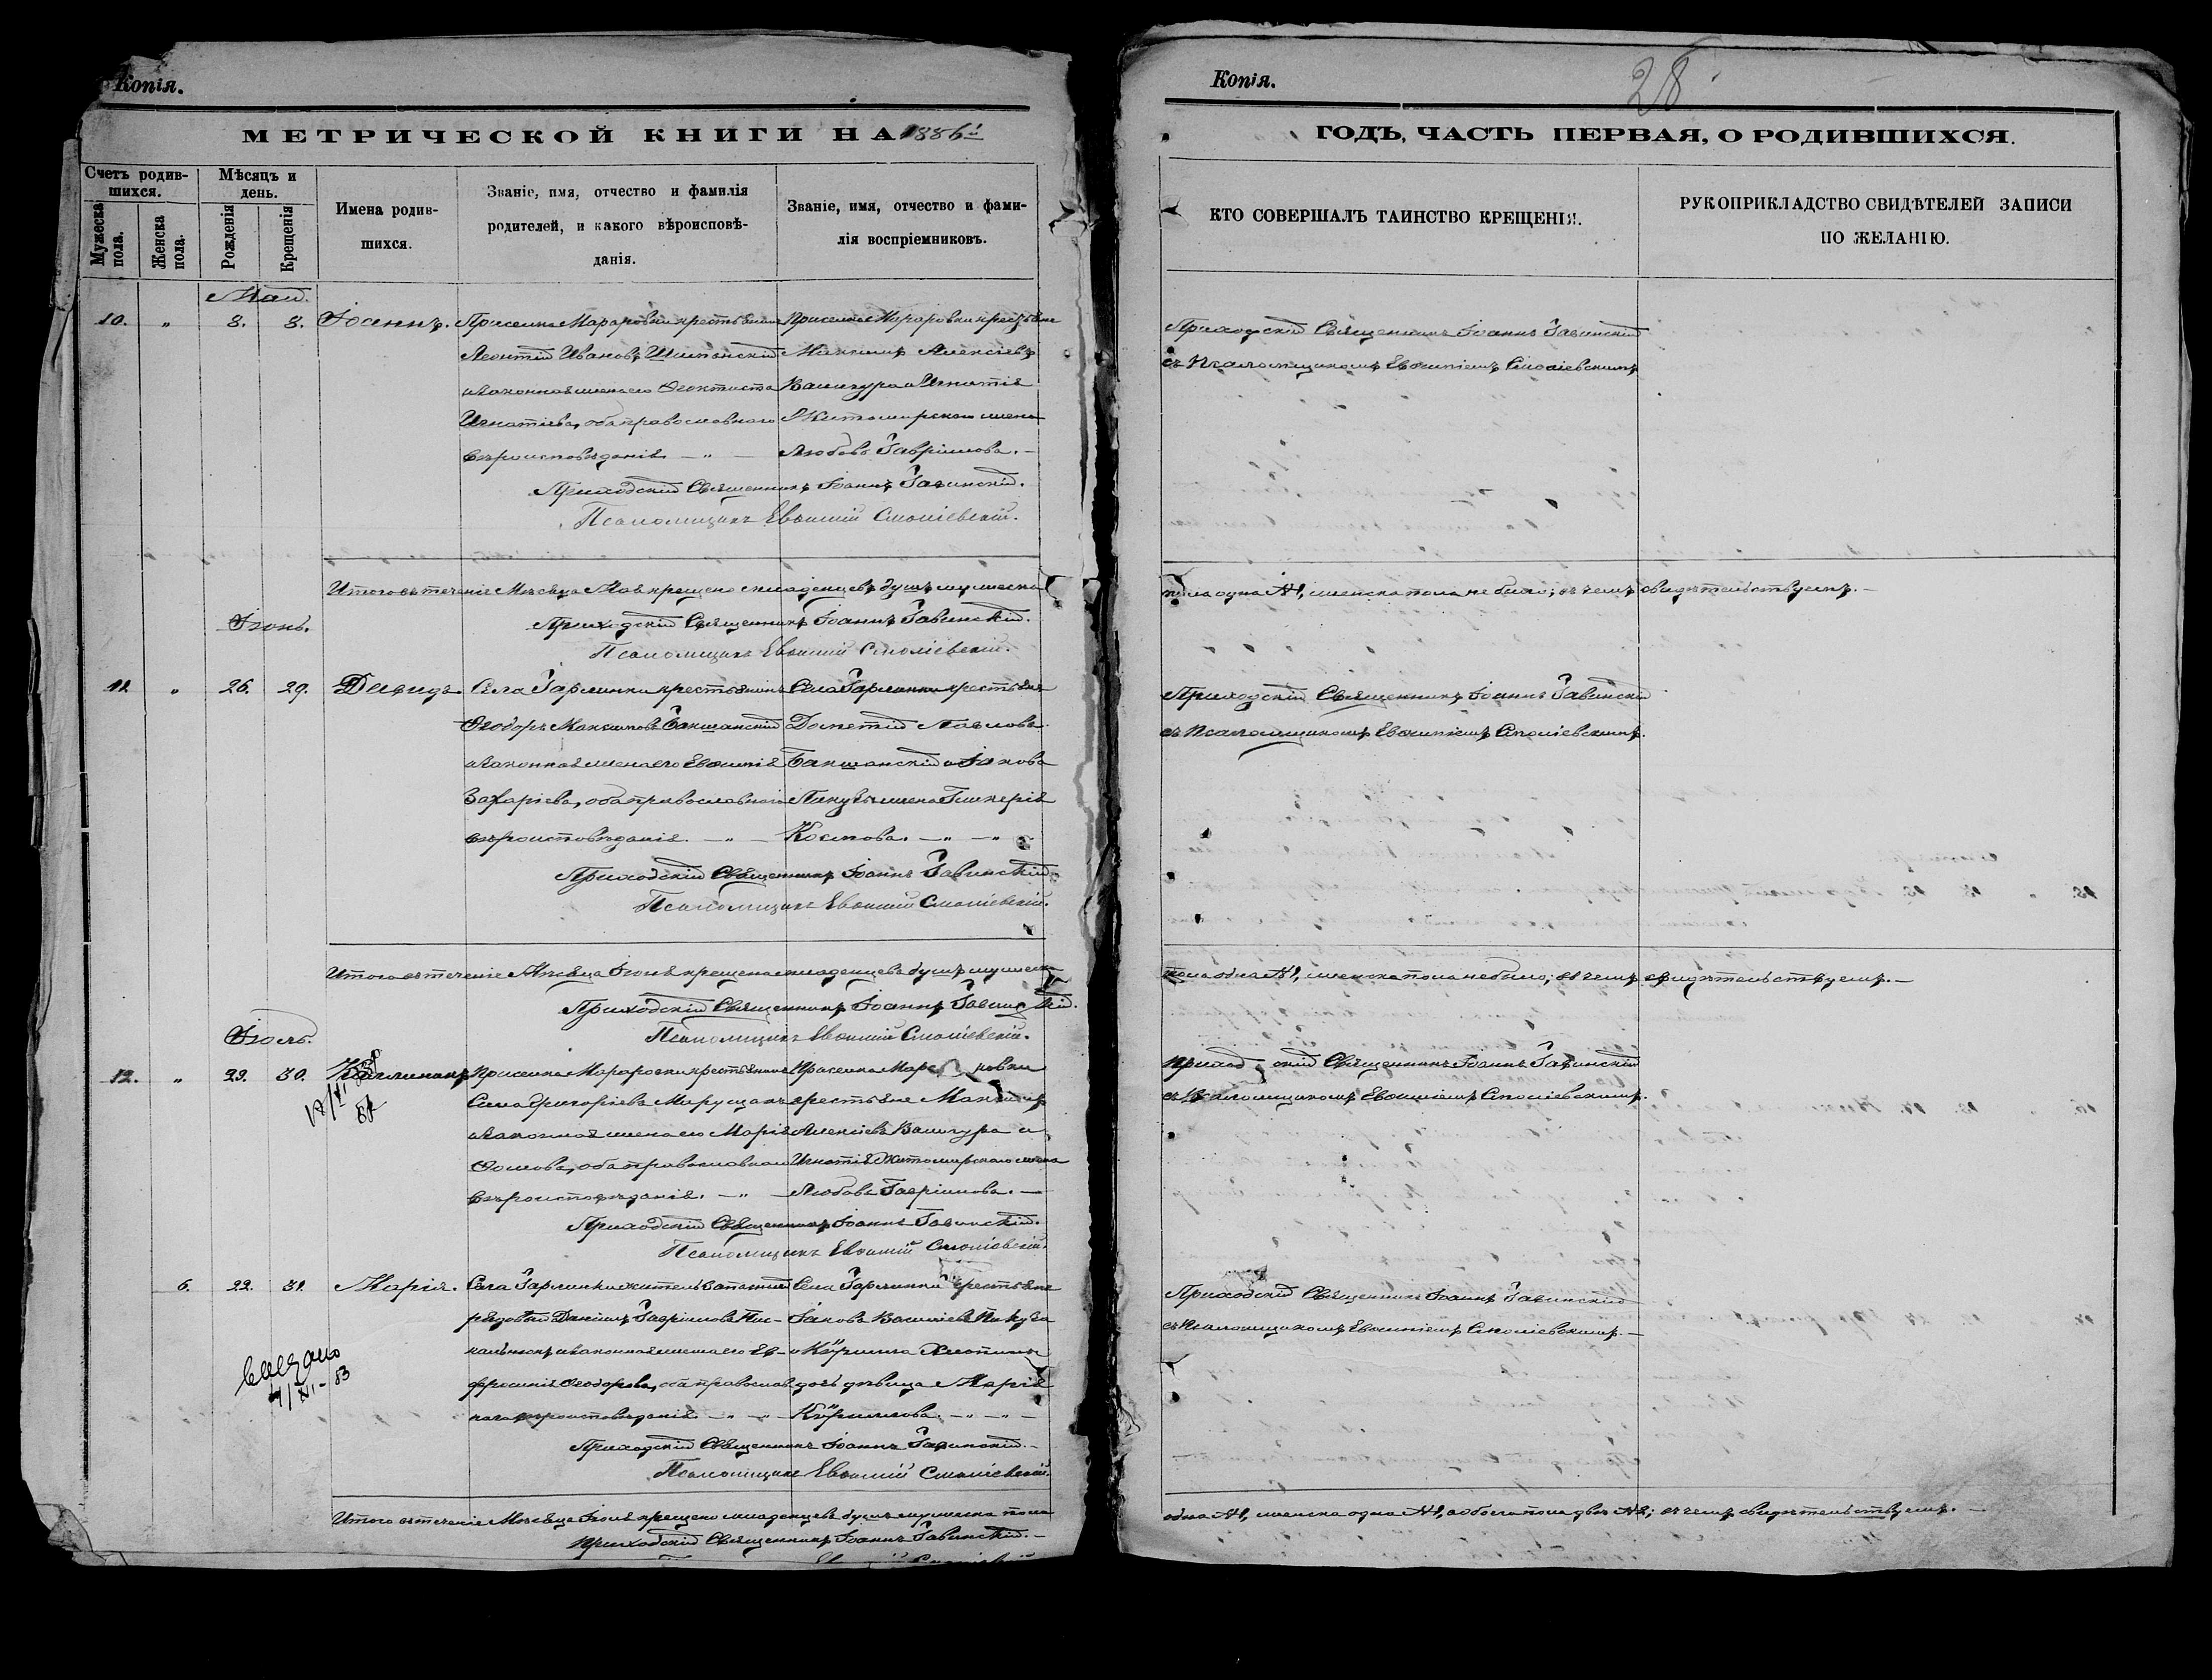 Копія.
МЕТРИЧЕСКОЙ КНИГИ НА 1886й
Счетъ родив-
шихся.
Мужеска
пола.
Женска
пола.
Мѣсяцъ и
день.
Рожденія
Крещенія
Имена родив-
шихся.
Званіе, имя, отчество и фамилія
родителей, и какого вѣроисповѣ-
данія.
Званіе, имя, отчество и фами-
лія воспріемниковъ.
Май.
10. " 8. 8. Іоаннъ.
Леонтій Ивановъ
и законная жена его Феоктиста
Игнатіева, оба православнаго
вѣроисповѣданія. — " —
Максимъ Алексіевъ
Вашчура и Игнатія
Житомирскаго жена
Любовь Гавріилова. —
Приходскій Священникъ Іоаннъ Гавинскій.
Псаломщикъ Евѳимій Смоліевскій.
Итого въ теченіе Мѣсяца Мая крещено младенцевъ душъ мужеска
Приходскій Священникъ Іоаннъ Гавинскій.
Псаломщикъ Евѳимій Смоліевскій.
Іюнь.
11. " 26. 29. Давидъ.
Села Гарлинки крестьянинъ
Ѳеодоръ Максимовъ Бакшанскій
и законная жена его Евѳимія
Захаріева, оба православнаго
вѣроисповѣданія. — " —
Села Гарлинки крестьяне
Дометій Павловъ
Бакшанскій и Іакова
жена Гликерія
Космова. — " — "
Приходскій Священникъ Іоаннъ Гавинскій.
Псаломщикъ Евѳимій Смоліевскій.
Итого въ теченіе Мѣсяца Іюня крещено младенцевъ душъ мужеска
Приходскій Священникъ Іоаннъ Гавинскій.
Псаломщикъ Евѳимій Смоліевскій.
Іюль.
12. " 29. 30. Каллиникъ
и законная жена его Марія
Ѳомова, оба православнаго
вѣроисповѣданія. — " —
крестьяне Максимъ
Алексіевъ Вашчура и
Игнатія Житомирскаго жена
Любовь Гавріилова. —
Приходскій Священникъ Іоаннъ Гавинскій.
Псаломщикъ Евѳимій Смоліевскій.
6. 22. 31. Марія.
Села Гарлинки житель запасный
рядовой Даніилъ Гавріиловъ
и законная жена его Ев-
фросинія Ѳеодорова, оба православ-
наго вѣроисповѣданія. — " — "
Села Гарлинки крестьяне
Іаковъ Василіевъ
и Кѵрилла
дочь дѣвица Марія
Кѵриллова. — " — " —
Приходскій Священникъ Іоаннъ Гавинскій. —
Псаломщикъ Евѳимій Смоліевскій.
Итого въ теченіе Мѣсяца Іюля крещено младенцевъ душъ мужеска пола
Приходскій Священникъ Іоаннъ Гавинскій. —
Копія.
28
ГОДЪ, ЧАСТЬ ПЕРВАЯ, О РОДИВШИХСЯ.
КТО СОВЕРШАЛЪ ТАИНСТВО КРЕЩЕНІЯ.
РУКОПРИКЛАДСТВО СВИДѢТЕЛЕЙ ЗАПИСИ
ПО ЖЕЛАНІЮ.
Приходскій Священникъ Іоаннъ Гавинскій
съ Псаломщикомъ Евѳиміемъ Смоліевскимъ
пола одна №1, женска пола не было; въ чемъ свидѣтельствуемъ. —
Приходскій Священникъ Іоаннъ Гавинскій
съ Псаломщикомъ Евѳиміемъ Смоліевскимъ.
пола одна №1, женска пола не было; въ чемъ свидѣтельствуемъ. —
Приходскій Священникъ Іоаннъ Гавинскій
съ Псаломщикомъ Евѳиміемъ Смоліевскимъ.
Приходскій Священникъ Іоаннъ Гавинскій
съ Псаломщикомъ Евѳиміемъ Смоліевскимъ. —
одна №1, женска одна №1, а обоего пола двѣ №2; въ чемъ свидѣтельствуемъ. —